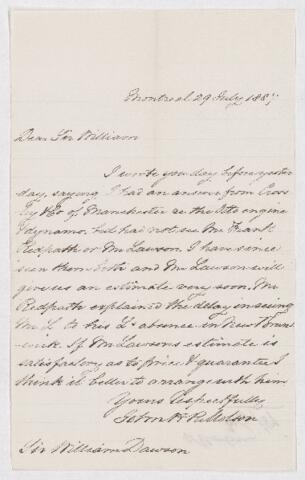 Montreal 29 July 188
Dear Sir William
I wrote you day before yester
day, saying I had an answer from Cross
ley & Co of Manchester as the Otto engine
& dynamo, but had not seen Mr Frank
Redpath or Mr Lawson. I have since
seen them both and Mr Lawson will
give us an estimate very soon. Mr
Redpath explained the delay in seeing
Mr L to his L's absence in New Bruns
wick. If Mr Lawsons estimate is
satisfactory as to price & guarantee I
think it better to arrange with him
Yours respectfully
John R
Sir William Dawson